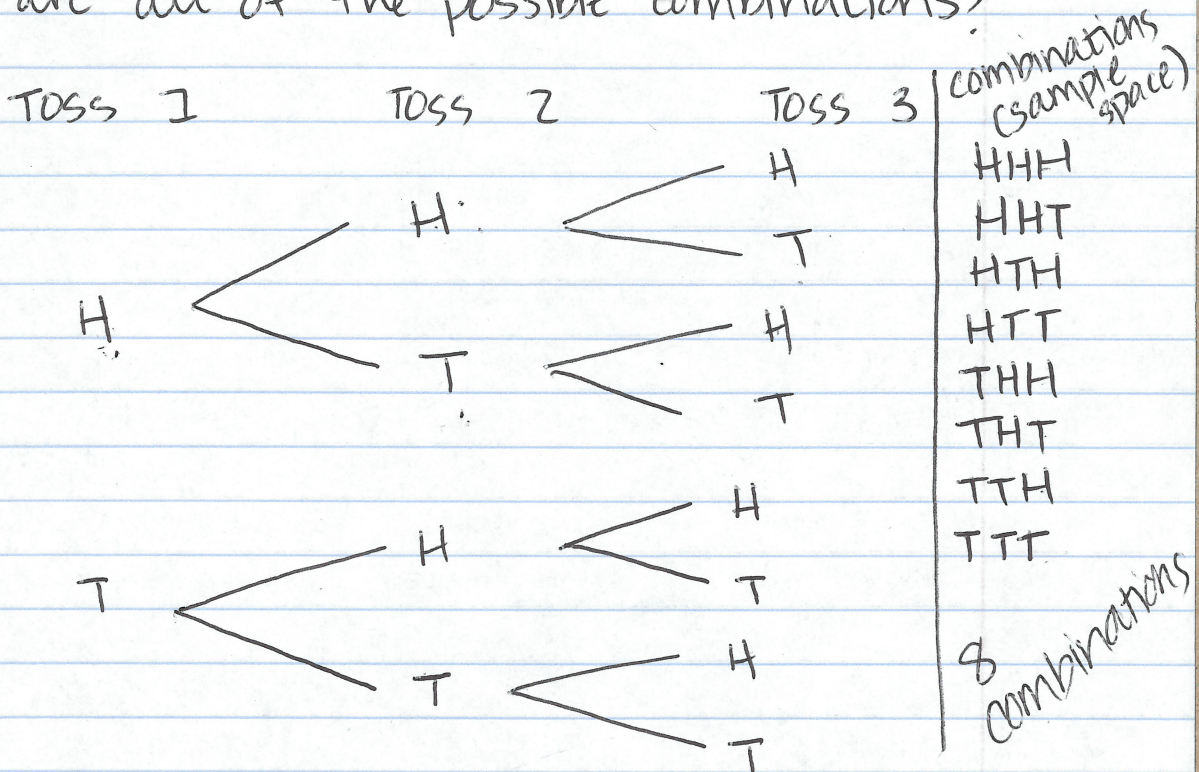 are all of the possible combinations?
TOSS 1 TOSS 2 TOSS 3
combinations
(sample
space)
H
H
H
T
T
H
T
T
H
H
T
T
H
T
HHH
HHT
HTH
HTT
THH
THT
TTH
TTT
8
combinations